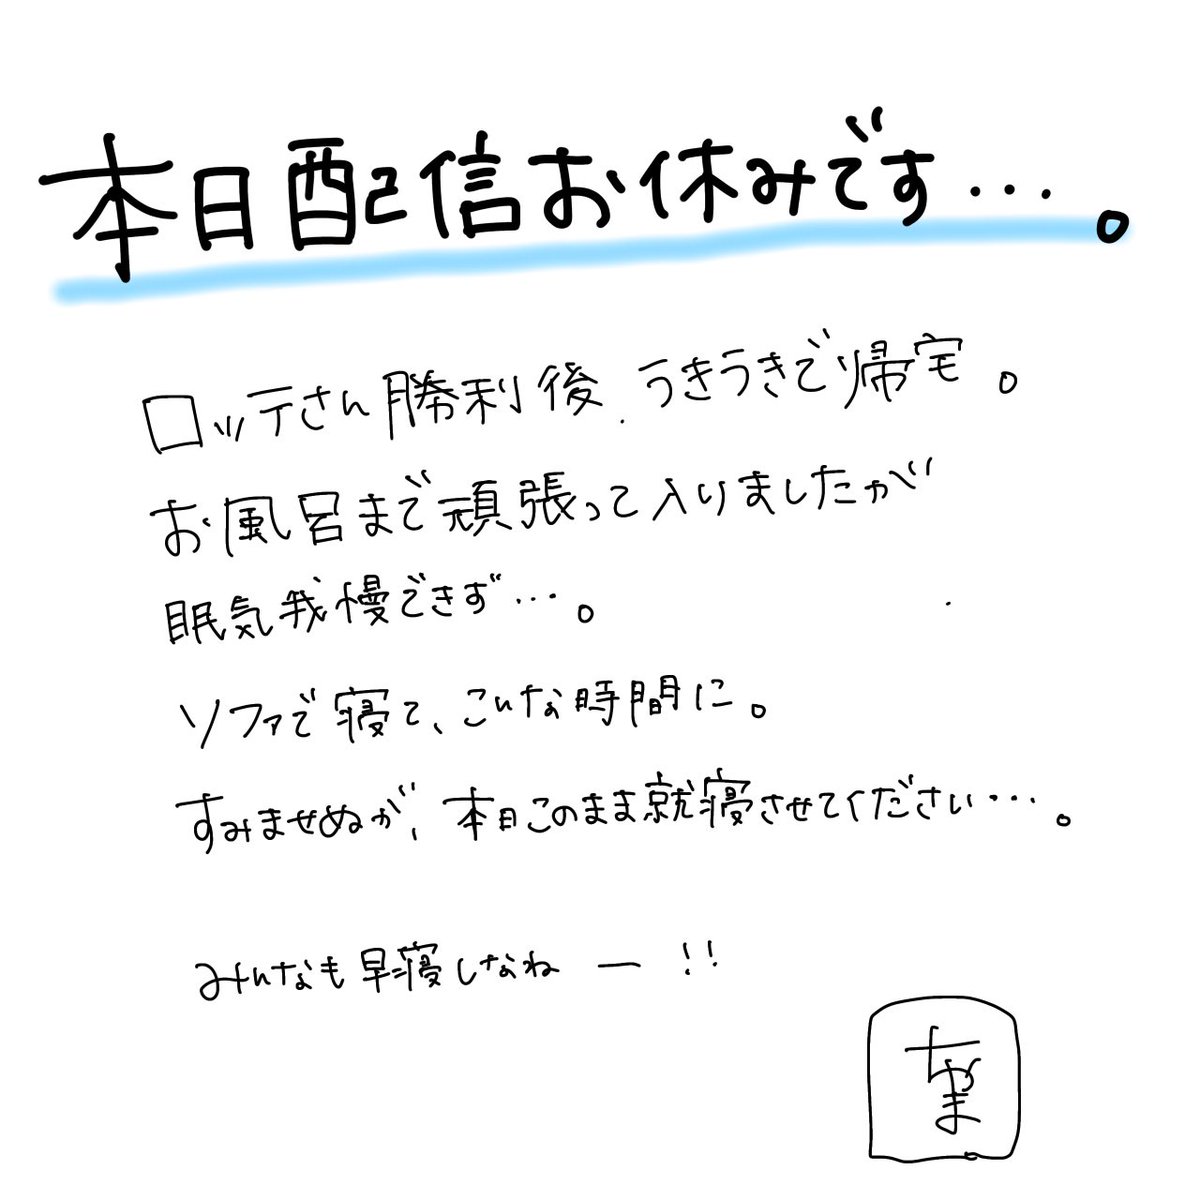 本日配信お休みです…。
ロッテさん勝利後、うきうきで帰宅。
お風呂まで頑張って入りましたが
眠気我慢できず…。
ソファで寝て、こんな時間に。
すみませぬが、本日このまま就寝させてください…。
みんなも早寝しなねー!!